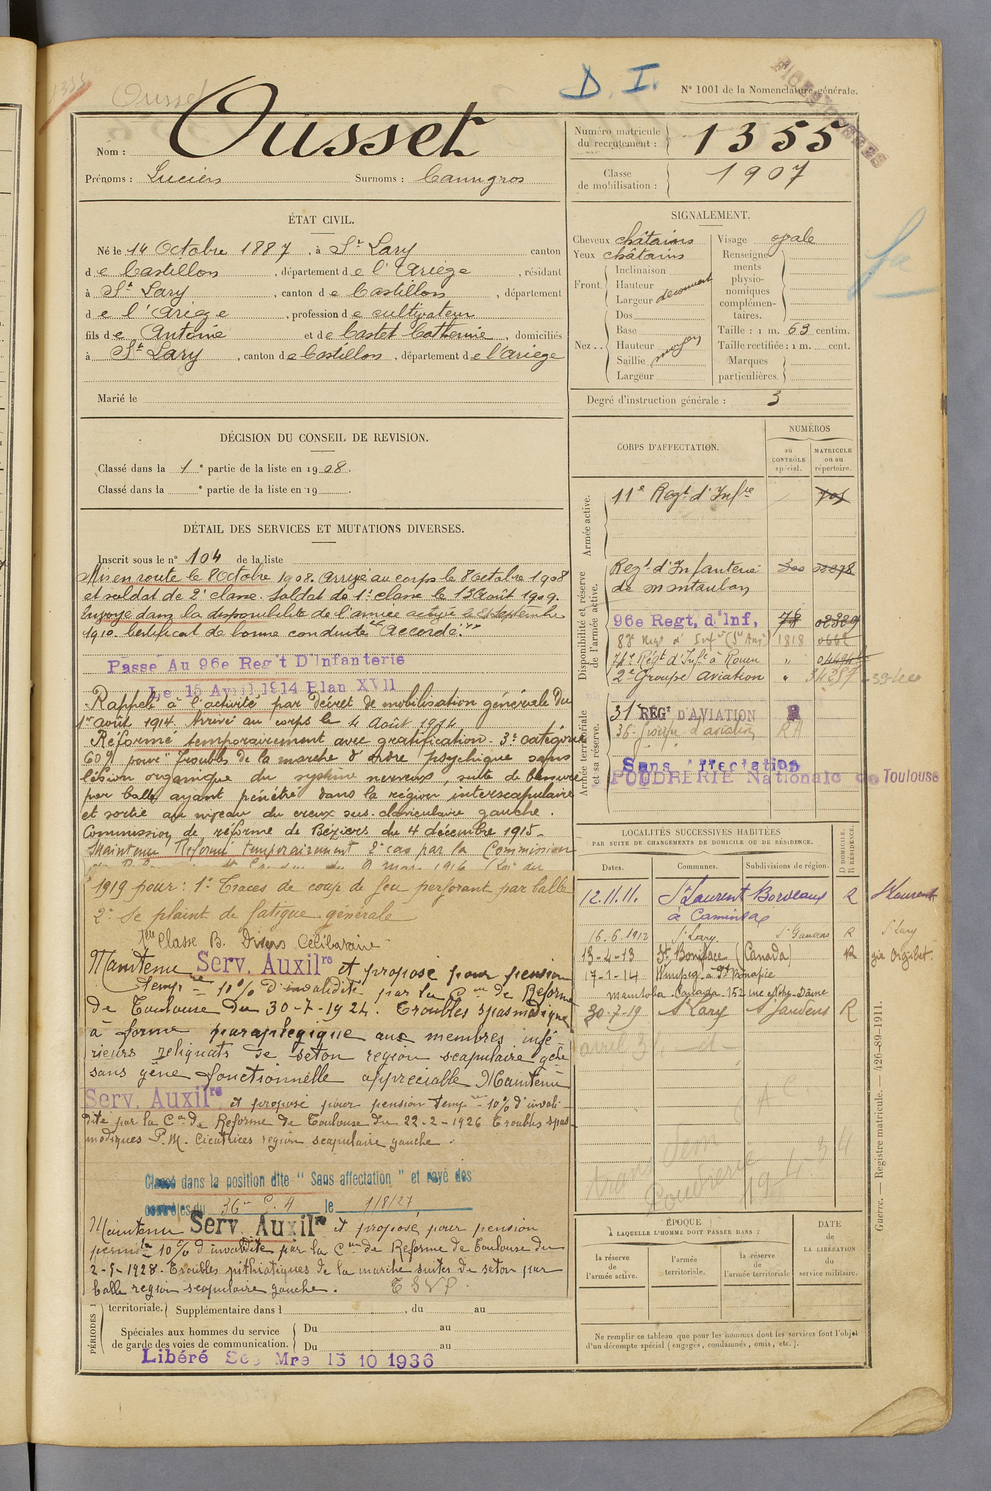 Ousset
D. I.
N° 1001 de la Nomenclature générale.
Nom : Ousset
Prénoms : Lucien Surnoms : Caungros
Numéro matricule du recrutement : 1355
Classe de mobilisation : 1907
ÉTAT CIVIL.
Né le 14 Octobre 1887, à St Lary canton
de Castillon, département de l'Ariège, résidant
à St Lary, canton de Castillon, département
de l'Ariège, profession de cultivateur
fils de Antoine et de Castet Catherine, domiciliés
à St Lary, canton de Castillon, département de l'Ariège
Marié le
SIGNALEMENT.
Cheveux châtains
Yeux châtains
Front. Inclinaison
Hauteur
Largeur
Nez.. Dos
Base
Hauteur moyen
Saillie
Largeur
Visage ovale
Renseignements physionomiques complémentaires.
Taille : 1 m. 63 centim.
Taille rectifiée : 1 m. cent.
Marques particulières.
Degré d'instruction générale : 3
DÉCISION DU CONSEIL DE REVISION.
Classé dans la 1e partie de la liste en 1908.
Classé dans la e partie de la liste en 19
DÉTAIL DES SERVICES ET MUTATIONS DIVERSES.
Inscrit sous le n° 104 de la liste
Mis en route le 8 Octobre 1908. Arrivé au corps le 8 Octobre 1908
et soldat de 2e classe. Soldat de 1e classe le 13 Août 1909.
Envoyé dans la disponibilité de l'armée active le 25 Septembre
1910. Certificat de bonne conduite "Accordé"
Passé Au 96e Reg't D'Infanterie
Le 15 Avril 1914 Plan XVII
Rappelé à l'activité par décret de mobilisation générale du
1er août 1914. Arrivé au corps le 4 Août 1914
Réformé temporairement avec gratification. 3e catégorie
60% pour : Troubles de la marche d'ordre psychique sans
lésion organique du système nerveux, suite de blessure
par balle ayant pénétré dans la région interscapulaire
et sortie au niveau du creux sus-claviculaire gauche.
Commission de réforme de Béziers du 4 décembre 1915.
Maintenu Réformé temporairement 2e cas par la Commission
1919 pour : 1° Traces de coup de feu perforant par balle
2° Se plaint de fatigue générale
Classe B. Divers Célibataire
Maintenu Serv. Auxilre et proposé pour pension
temp re 10% d'invalidité par la Con de Réforme
de Toulouse du 30-7-1924. Troubles spasmodiques
à forme paraplégique aux membres infé-
rieurs reliquats de seton region scapulaire gche
sans gêne fonctionnelle appréciable Maintenu
Serv. Auxilre et proposé pour pension temp re 10% d'invali-
dité par la Con de Réforme de Toulouse du 22-2-1926 Troubles spas-
modiques P.M. Cicatrices region scapulaire gauche.
Classé dans la position dite "Sans affectation" et rayé des
contrôles du 36e le 1/8/27
Maintenu Serv. Auxilre et proposé pour pension
permte 10% d'invalidité par la Con de Réforme de Toulouse du
2-5-1928. Troubles pithiatiques de la marche suites de seton par
balle region scapulaire gauche. TSVP
PÉRIODES
territoriale. Supplémentaire dans l , du au
Spéciales aux hommes du service de garde des voies de communication. Du au
Du au
Libéré Ser Mre 15 10 1936
CORPS D'AFFECTATION.
NUMÉROS
au CONTRÔLE spécial.
MATRICULE ou au répertoire.
Armée active.
11e Regt d'Infie
Disponibilité et réserve de l'armée active.
Regt d'Infanterie
de Montauban
96e Regt, d'Inf,
1818
74e Régt d'Inft à Rouen
2e Groupe Aviation
Armée territoriale et sa réserve.
31e REGt D'AVIATION
36e Groupe d'aviation
Sans affectation
POUDRERIE Nationale de Toulouse
LOCALITÉS SUCCESSIVES HABITÉES
PAR SUITE DE CHANGEMENTS DE DOMICILE OU DE RÉSIDENCE.
Dates. Communes. Subdivisions de région. D. DOMICILE. R. RÉSIDENCE.
12.11.11. St Laurent Bordeaux R St Laurent
16.6.1912 St Lary St Gaudens R St Lary
13-4-13 St Boniface (Canada) R
17-1-14 Winipeg à St Boniface
Manitoba Canada 152 rue Notre-Dame
30-7-19 St Lary St Gaudens R
avril 31 d-
Poudrerie
ÉPOQUE
À LAQUELLE L'HOMME DOIT PASSER DANS :
la réserve de l'armée active. l'armée territoriale. la réserve de l'armée territoriale
DATE de LA LIBÉRATION du service militaire.
Ne remplir ce tableau que pour les hommes dont les services font l'objet
d'un décompte spécial (engagés, condamnés, omis, etc.).
Guerre. — Registre matricule. — 426-89-1911.